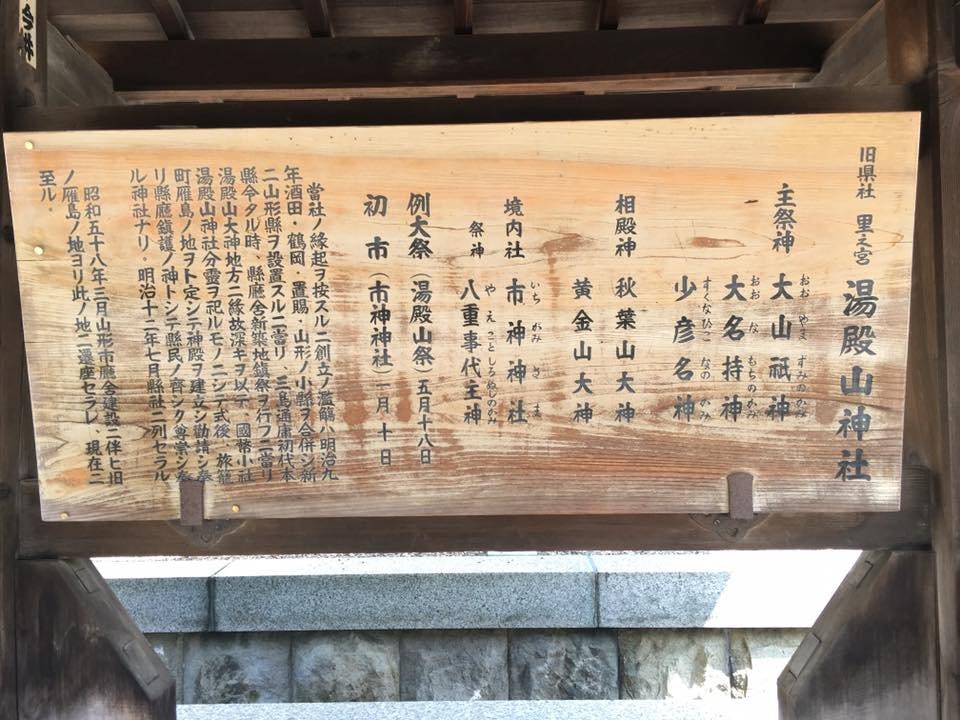 旧県社 里之宮 湯殿山神社
主祭神 大山祇神
おお やま ずみのかみ
大名持神
おお な もちのかみ
少彦名神
すくなひこ なの かみ
相殿神 秋葉山大神
黄金山大神
境内社 市神神社
いち がみ さ ま
祭神 八重事代主神
や え ことしろぬしのかみ
例大祭(湯殿山祭)五月十八日
初市(市神神社)一月十日
當社ノ縁起ヲ按スルニ創立ノ濫觴ハ明治九
年酒田・鶴岡・置賜・山形ノ小縣ヲ合併シ新
ニ山形縣ヲ設置スルニ當リ、三島通庸初代本
縣令タル時、縣廳舎新築地鎮祭ヲ行フニ當リ
湯殿山大神地方ニ縁故深キヲ以テ、國幣小社
湯殿山神社分霊ヲ祀ルモノニシテ式後、旅籠
町雁島ノ地ヲト定シテ神殿ヲ建立シ勸請シ奉
リ縣廳鎮護ノ神トシテ縣民ノ齊シク尊崇シ奉
ル神社ナリ。明治十二年七月縣社ニ列セラル
昭和五十八年三月山形市廳舎建設ニ伴ヒ旧
ノ雁島ノ地ヨリ此ノ地ニ遷座セラレ 現在ニ
至ル。